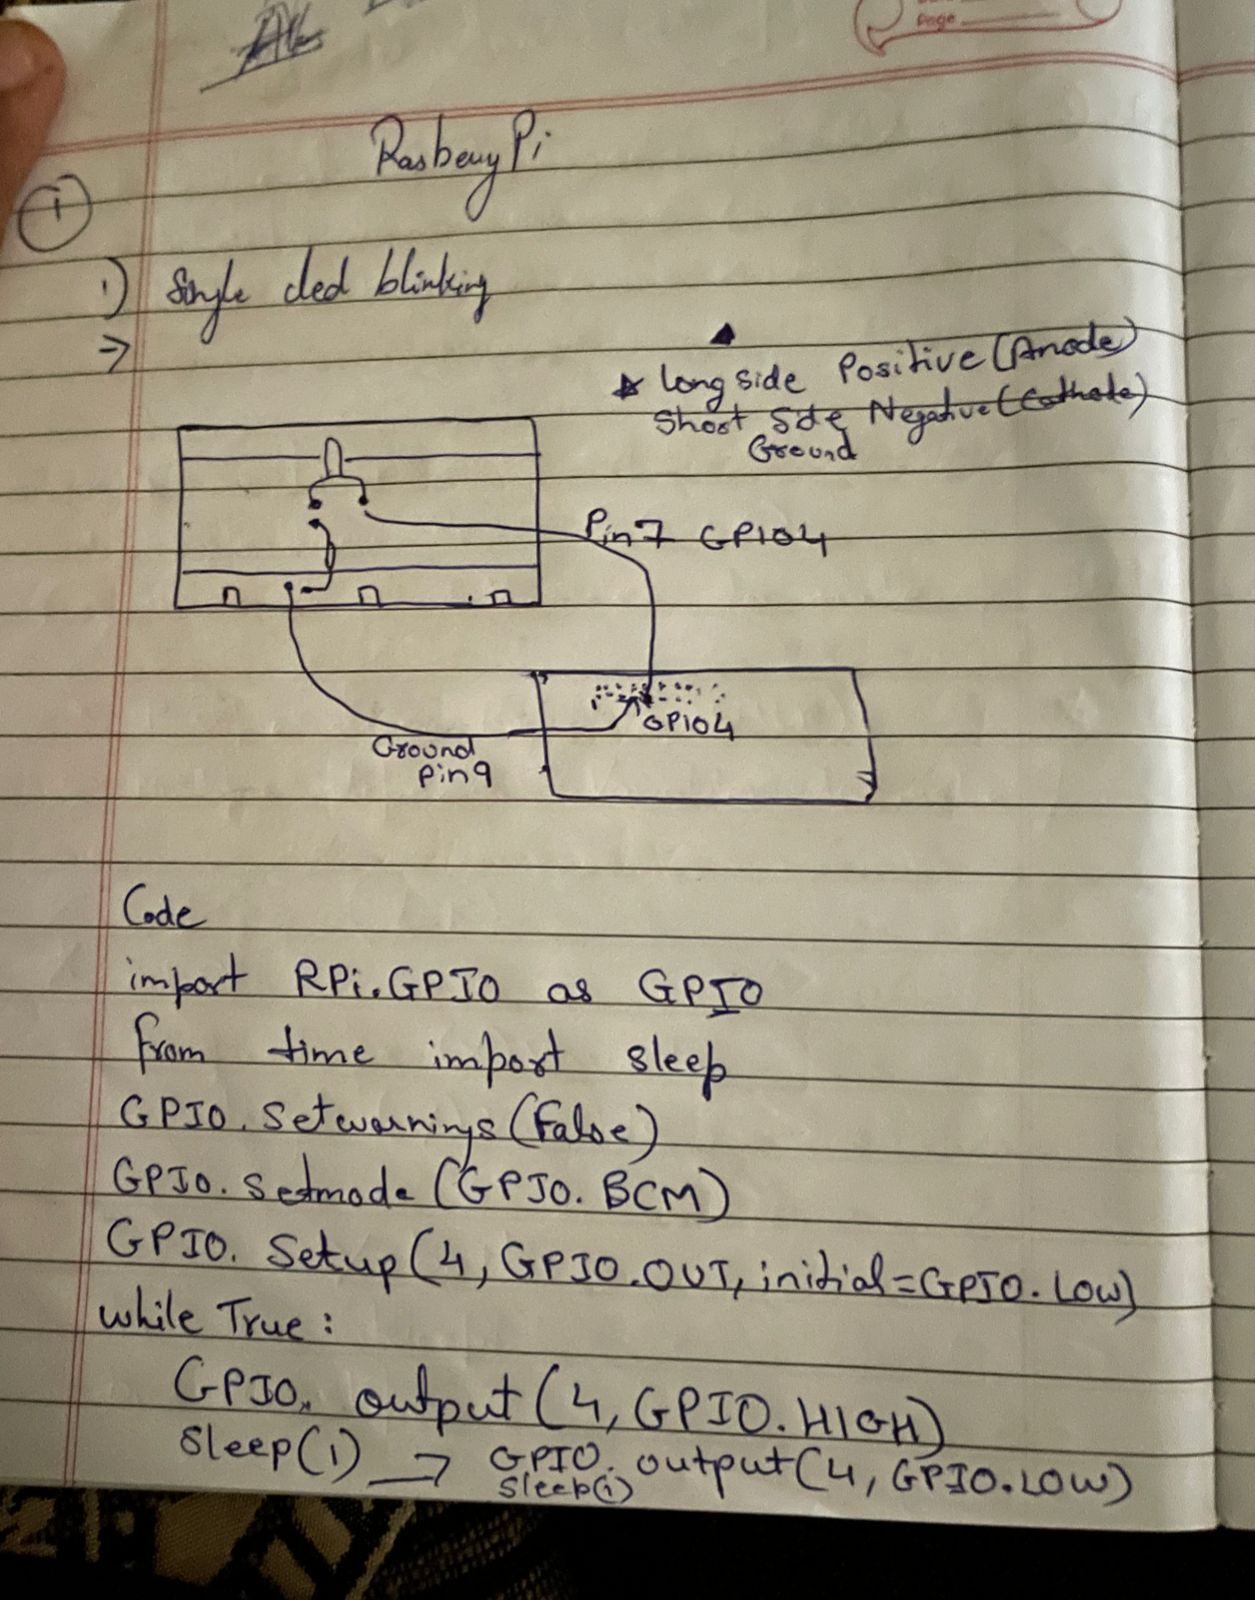 Page
Rasberry Pi
1
1) Single Led blinking
⇒
* Long side Positive (Anode)
Short Side Negative (Cathode)
Ground
Pin 7 GPIO4
GPIO4
Ground
Pin 9
Code
import RPi.GPIO as GPIO
from time import sleep
GPIO.setwarnings(False)
GPIO.setmode(GPIO.BCM)
GPIO.setup(4, GPIO.OUT, initial=GPIO.LOW)
while True:
GPIO.output(4, GPIO.HIGH)
sleep(1) → GPIO.output(4, GPIO.LOW)
sleep(1)